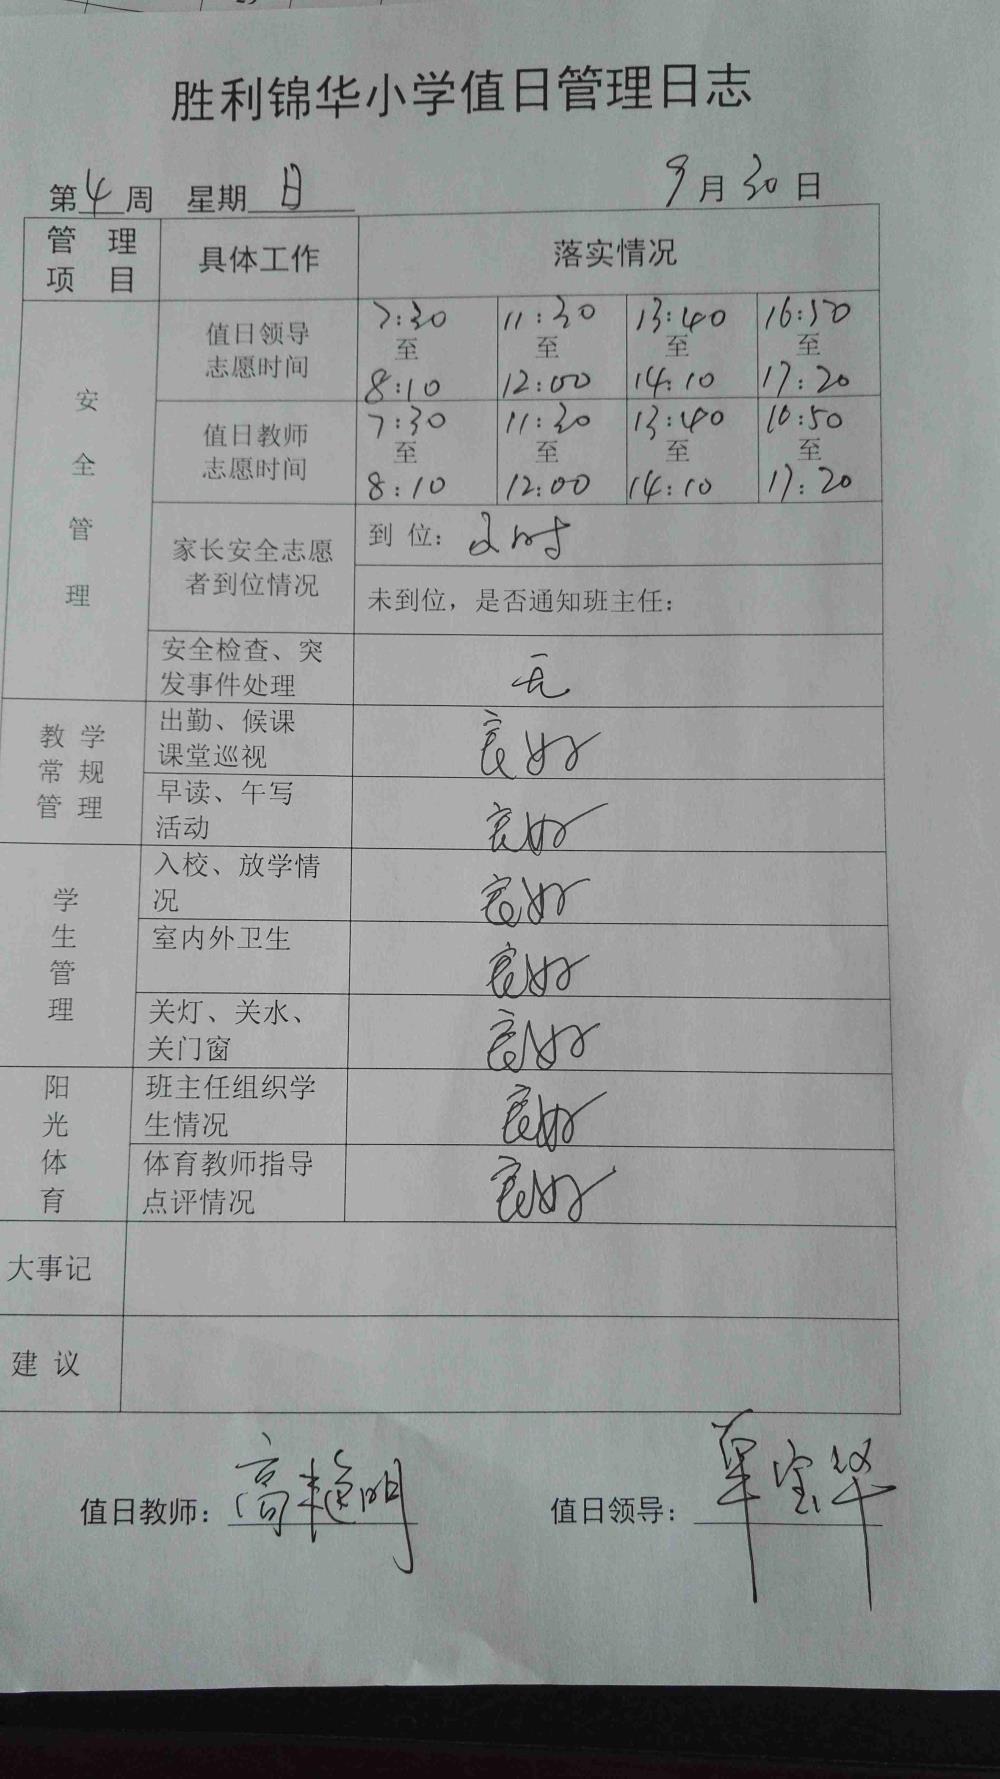 胜利锦华小学值日管理日志
第4周 星期日 9月30日
管理项目 具体工作 落实情况
安全管理
值日领导志愿时间 7:30至8:10 11:30至12:00 13:40至14:10 16:50至17:20
值日教师志愿时间 7:30至8:10 11:30至12:00 13:40至14:10 16:50至17:20
家长安全志愿者到位情况 到位：及时
未到位，是否通知班主任：
安全检查、突发事件处理 无
教学常规管理
出勤、候课课堂巡视 良好
早读、午写活动 良好
学生管理
入校、放学情况 良好
室内外卫生 良好
关灯、关水、关门窗 良好
阳光体育
班主任组织学生情况 良好
体育教师指导点评情况 良好
大事记
建议
值日教师：高艳明 值日领导：宝华